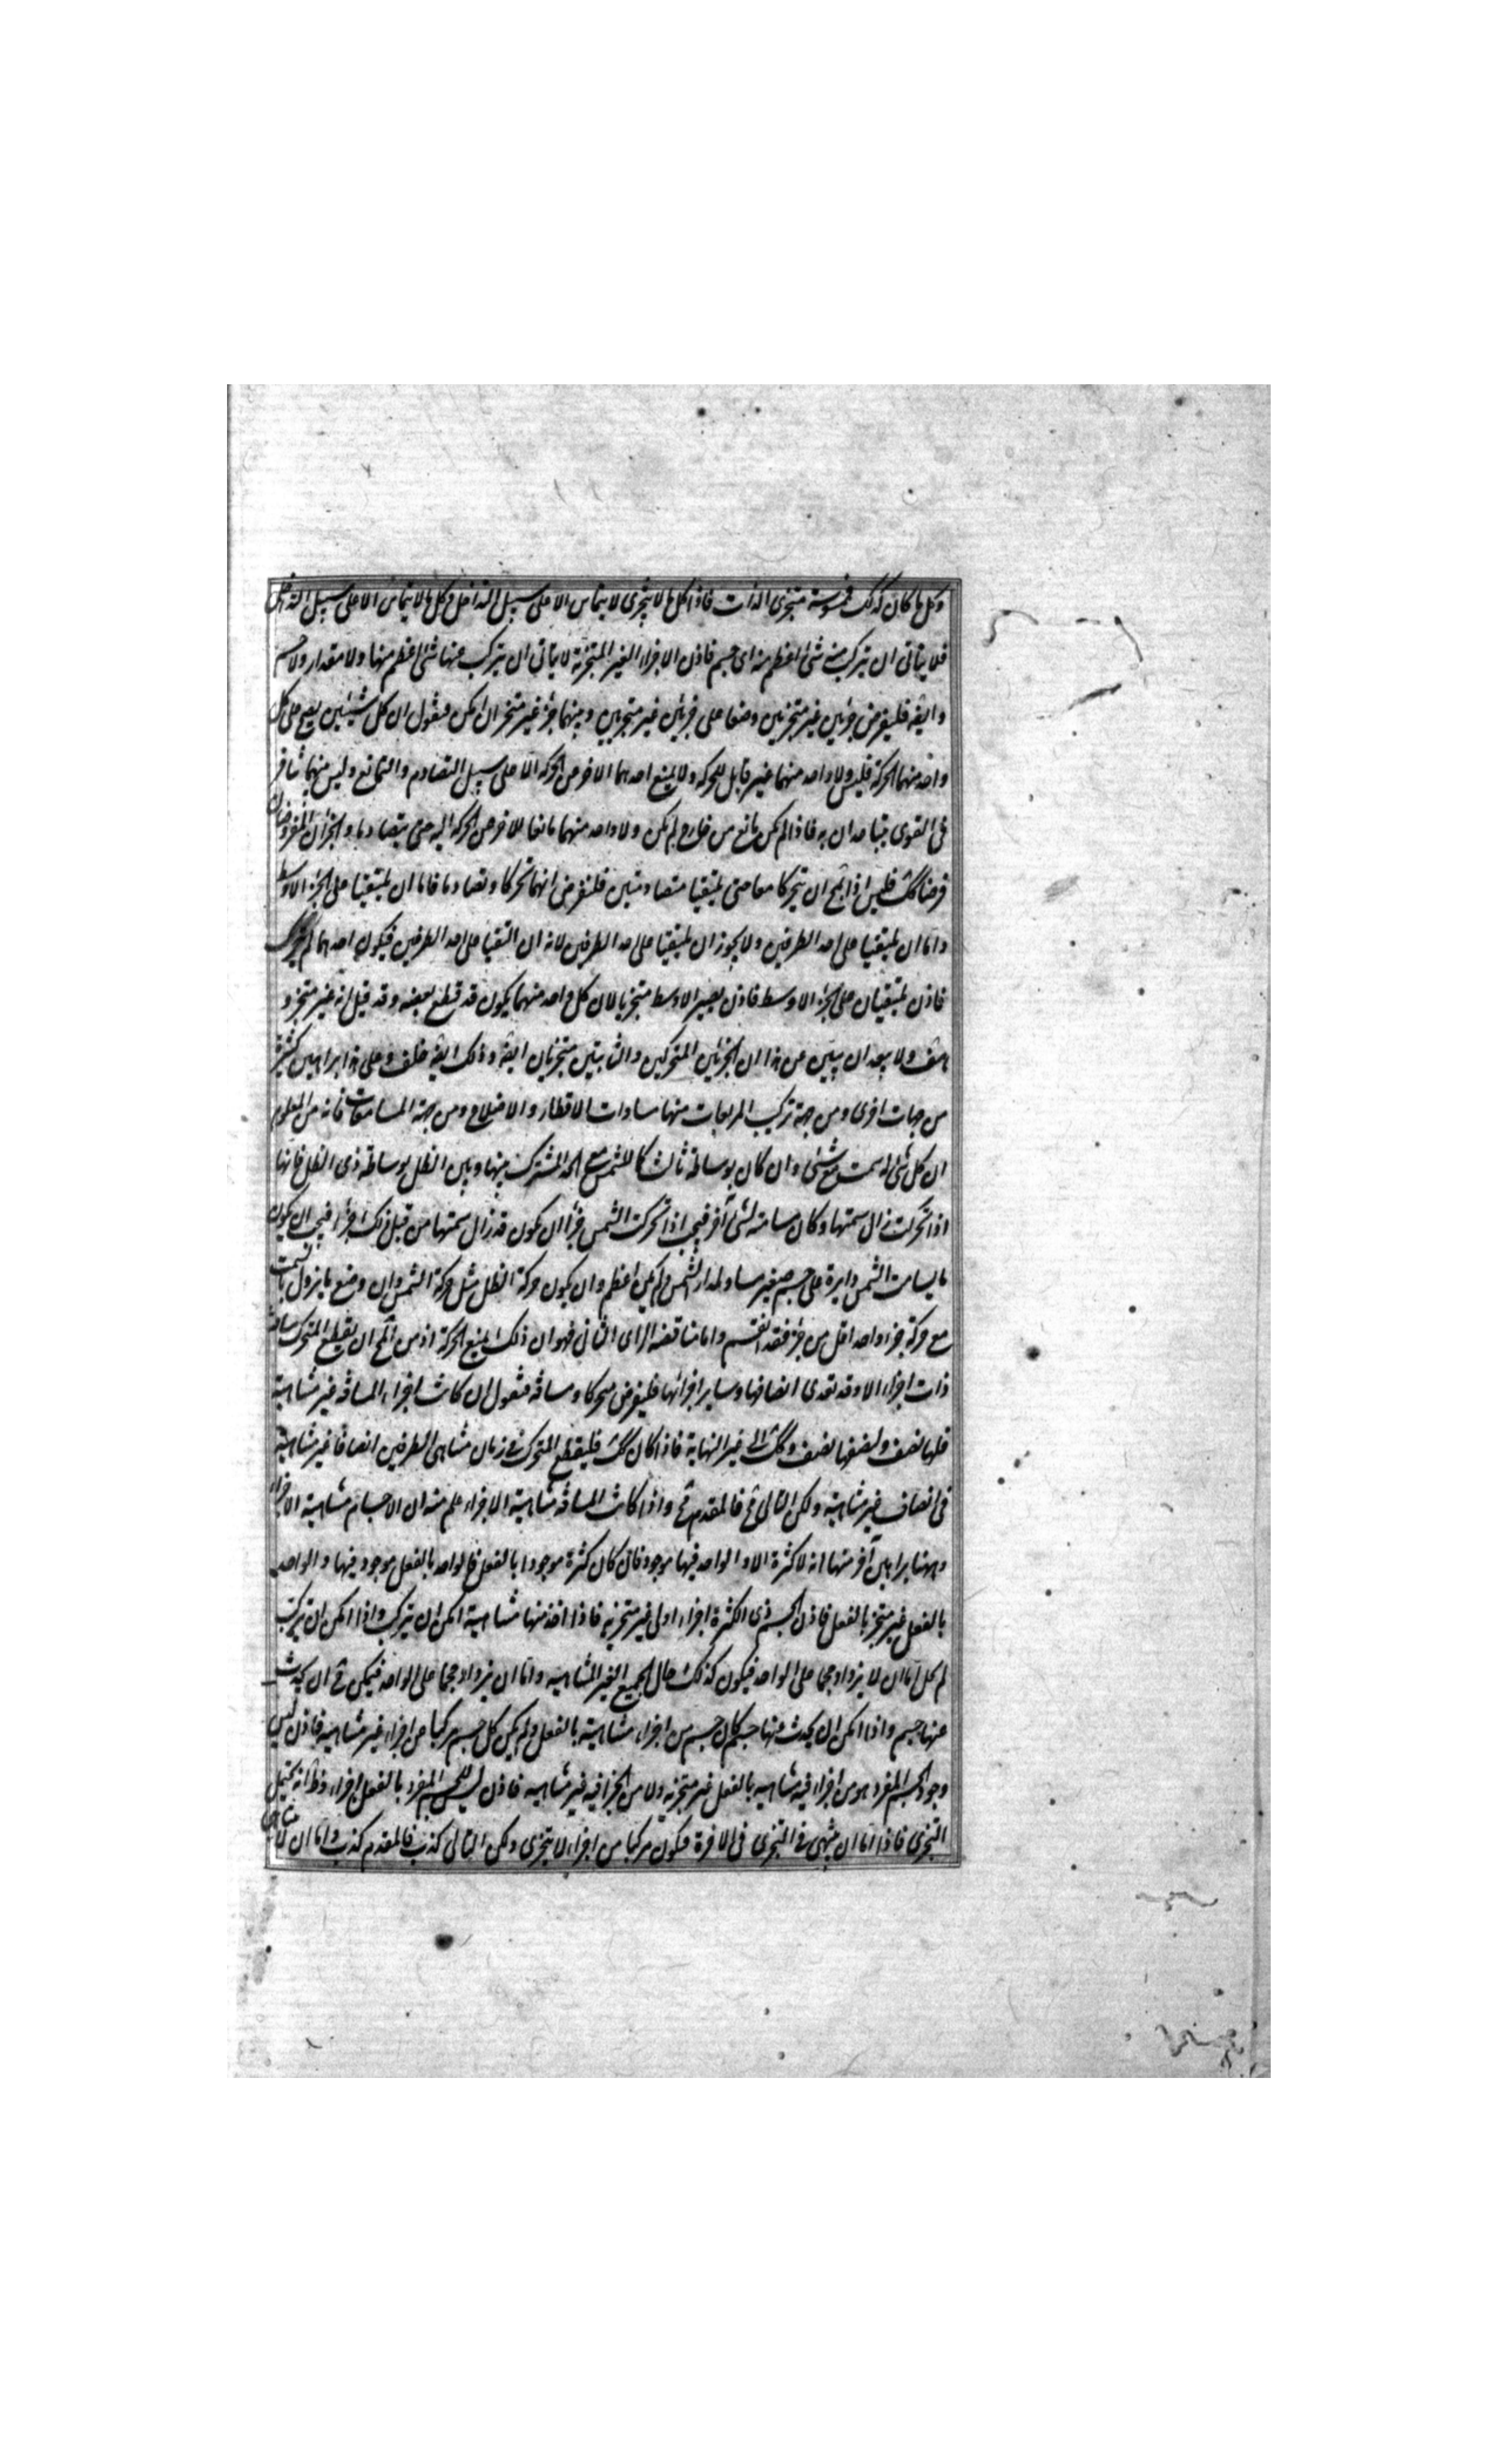 وكل ما كان كذلك فممسوسه متجزى الذات فاذا كل ما لا يتجزى لا يتماس الا على سبيل التداخل وكل ما لا يتماس الا على سبيل التداخل
فلا يتاتى ان يتركب منه شئ اعظم منه اى جسم فاذن الاجزاء الغير المتجزئة لا يتاتى ان يتركب عنها شئ اعظم منها ولا مقدار ولا جسم
وايضه فليفرض جزئين غير متجزئين وضعا على جزئين غير متجزيين وبينهما جزء غير متجز ان امكن فنقول ان كل شيئين يصح على كل
واحد منهما الحركة فليس ولا واحد منهما غير قابل للحركة ولا يمنع احدهما الاخر من الحركة الا على سبيل التصادم والتمانع وليس بينهما تنافر
فى القوى يتباعدان به فاذا لم يكن مانع من خارج لم يكن ولا واحد منهما مانعا للاخر من الحركة اليه حتى يتصادما والجزءان المفروضان
فرضا كك فليس اذا بمح ان يتحركا معا حتى يلتقيا متصادمين فلنفرض انهما تحركا وتصادما فاما ان يلتقيا على الجزء الاوسط
واما ان يلتقيا على احد الطرفين ولا يجوز ان يلتقيا على احد الطرفين لانه ان التقيا على احد الطرفين فيكون احدهما لم يتحرك
فاذن يلتقيان على الجزء الاوسط فاذن يصير الاوسط متجزيا لان كل واحد منهما يكون قد قطع بعضه وقد قيل انه غير متجز و
هف ولا يبعد ان يبين من هذا ان الجزئين المتحركين والثابتين متجزيان ايضه وذلك ايضه خلف وعلى هذا براهين كثيرة
من جهات اخرى ومن جهة تركيب المربعات منها مساوات الاقطار والاضلاع ومن جهة المسامتات فانه من المعلوم
ان كل شئ له سمت مع شئ وان كان بوساطة ثالث كما للشمس مع الحد المشترك بينها وبين الظل بوساطة ذى الظل فانها
اذا تحركت زال سمتها وكان مسامته لشئ آخر فيجب اذا تحركت الشمس جزءا ان يكون قد زال سمتها من قبل ذلك جزءا فيجب ان يكون
ما يسامت الشمس دايرة على جسم صغير مساو لمدار الشمس ولم يكن اعظم وان يكون حركة الظل مثل حركة الشمس وان وضع ما يزول بالسمت
مع حركة جزء واحد اقل من جزء فقد انقسم واما مناقضه الراى الثانى فهو ان ذلك يمنع الحركة اذ من المح ان يقطع المتحرك مسافة
ذات اجزاء الا وقد تعدى انصافها وساير اجزائها فليفرض متحركا ومسافة فنقول ان كانت اجزاء المسافة غير متناهية
فلها نصف ولنصفها نصف وكك الى غير النهاية فاذا كان كك فليقطع المتحرك فى زمان متناهى الطرفين انصافا غير متناهية
فى انصاف غير متناهية ولكن التالى مح فالمقدم مح واذا كانت المسافة متناهية الاجزاء علم منه ان الاجسام متناهية الاجزاء
وههنا براهين آخر منها انه لا كثرة الا والواحد فيها موجود فان كان كثرة موجودا بالفعل فالواحد بالفعل موجود فيها والواحد
بالفعل غير متجز بالفعل فاذن الجسم ذى الكثرة اجزاء اولى غير متجزيه فاذا اخذ منها متناهية امكن ان يتركب واذا امكن ان يتركب
لم كل اما ان لا يزداد حجما على الواحد فيكون كذلك حال الجميع الغير المتناهيه واما ان يزداد حجما على الواحد فيمكن مح ان يحدث
عنها جسم واذا امكن ان يحدث منها جسم كان جسم من اجزاء متناهية بالفعل ولم يكن كل جسم مركبا من اجزاء غير متناهيه فاذن ليس
وجود الجسم المفرد هو من اجزاء فيه متناهيه بالفعل غير متجزيه ولا من اجزاء فيه غير متناهيه فاذن ليس للجسم المفرد بالفعل اجزاء وظ انه يحتمل
التجزى فاذا اما ان ينتهى فى التجزى فى الاخرة فيكون مركبا من اجزاء لا يتجزى ولكن التالى كذب فالمقدم كذب واما ان لا يتناهى